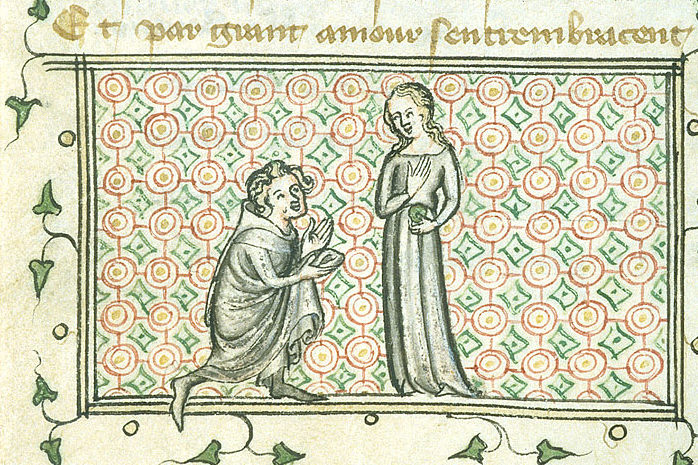 Et par grant amour sentrembracent